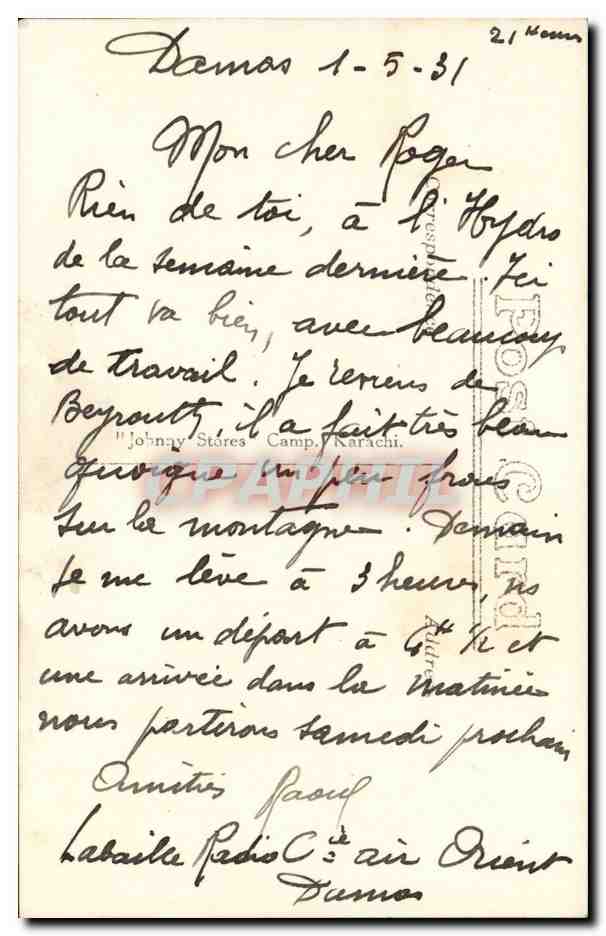 21 heures
Damas 1-5-31
Mon cher Roger
Rien de toi, à l'Hydro
de la semaine dernière. Ici
tout va bien, avec beaucoup
de travail. Je reviens de
Beyrouth, il a fait très beau
"Johnny Stores" Camp. Karachi.
quoique un peu frais
sur la montagne. Demain
je me lève à 3 heures, ns
avons un départ à 4 H 1/2 et
une arrivée dans la matinée
nous partirons samedi prochain
Amitiés Raoul
Labaille Radio Cie air Orient
Damas
Post Card
Correspondence
Address
CPAPHIL